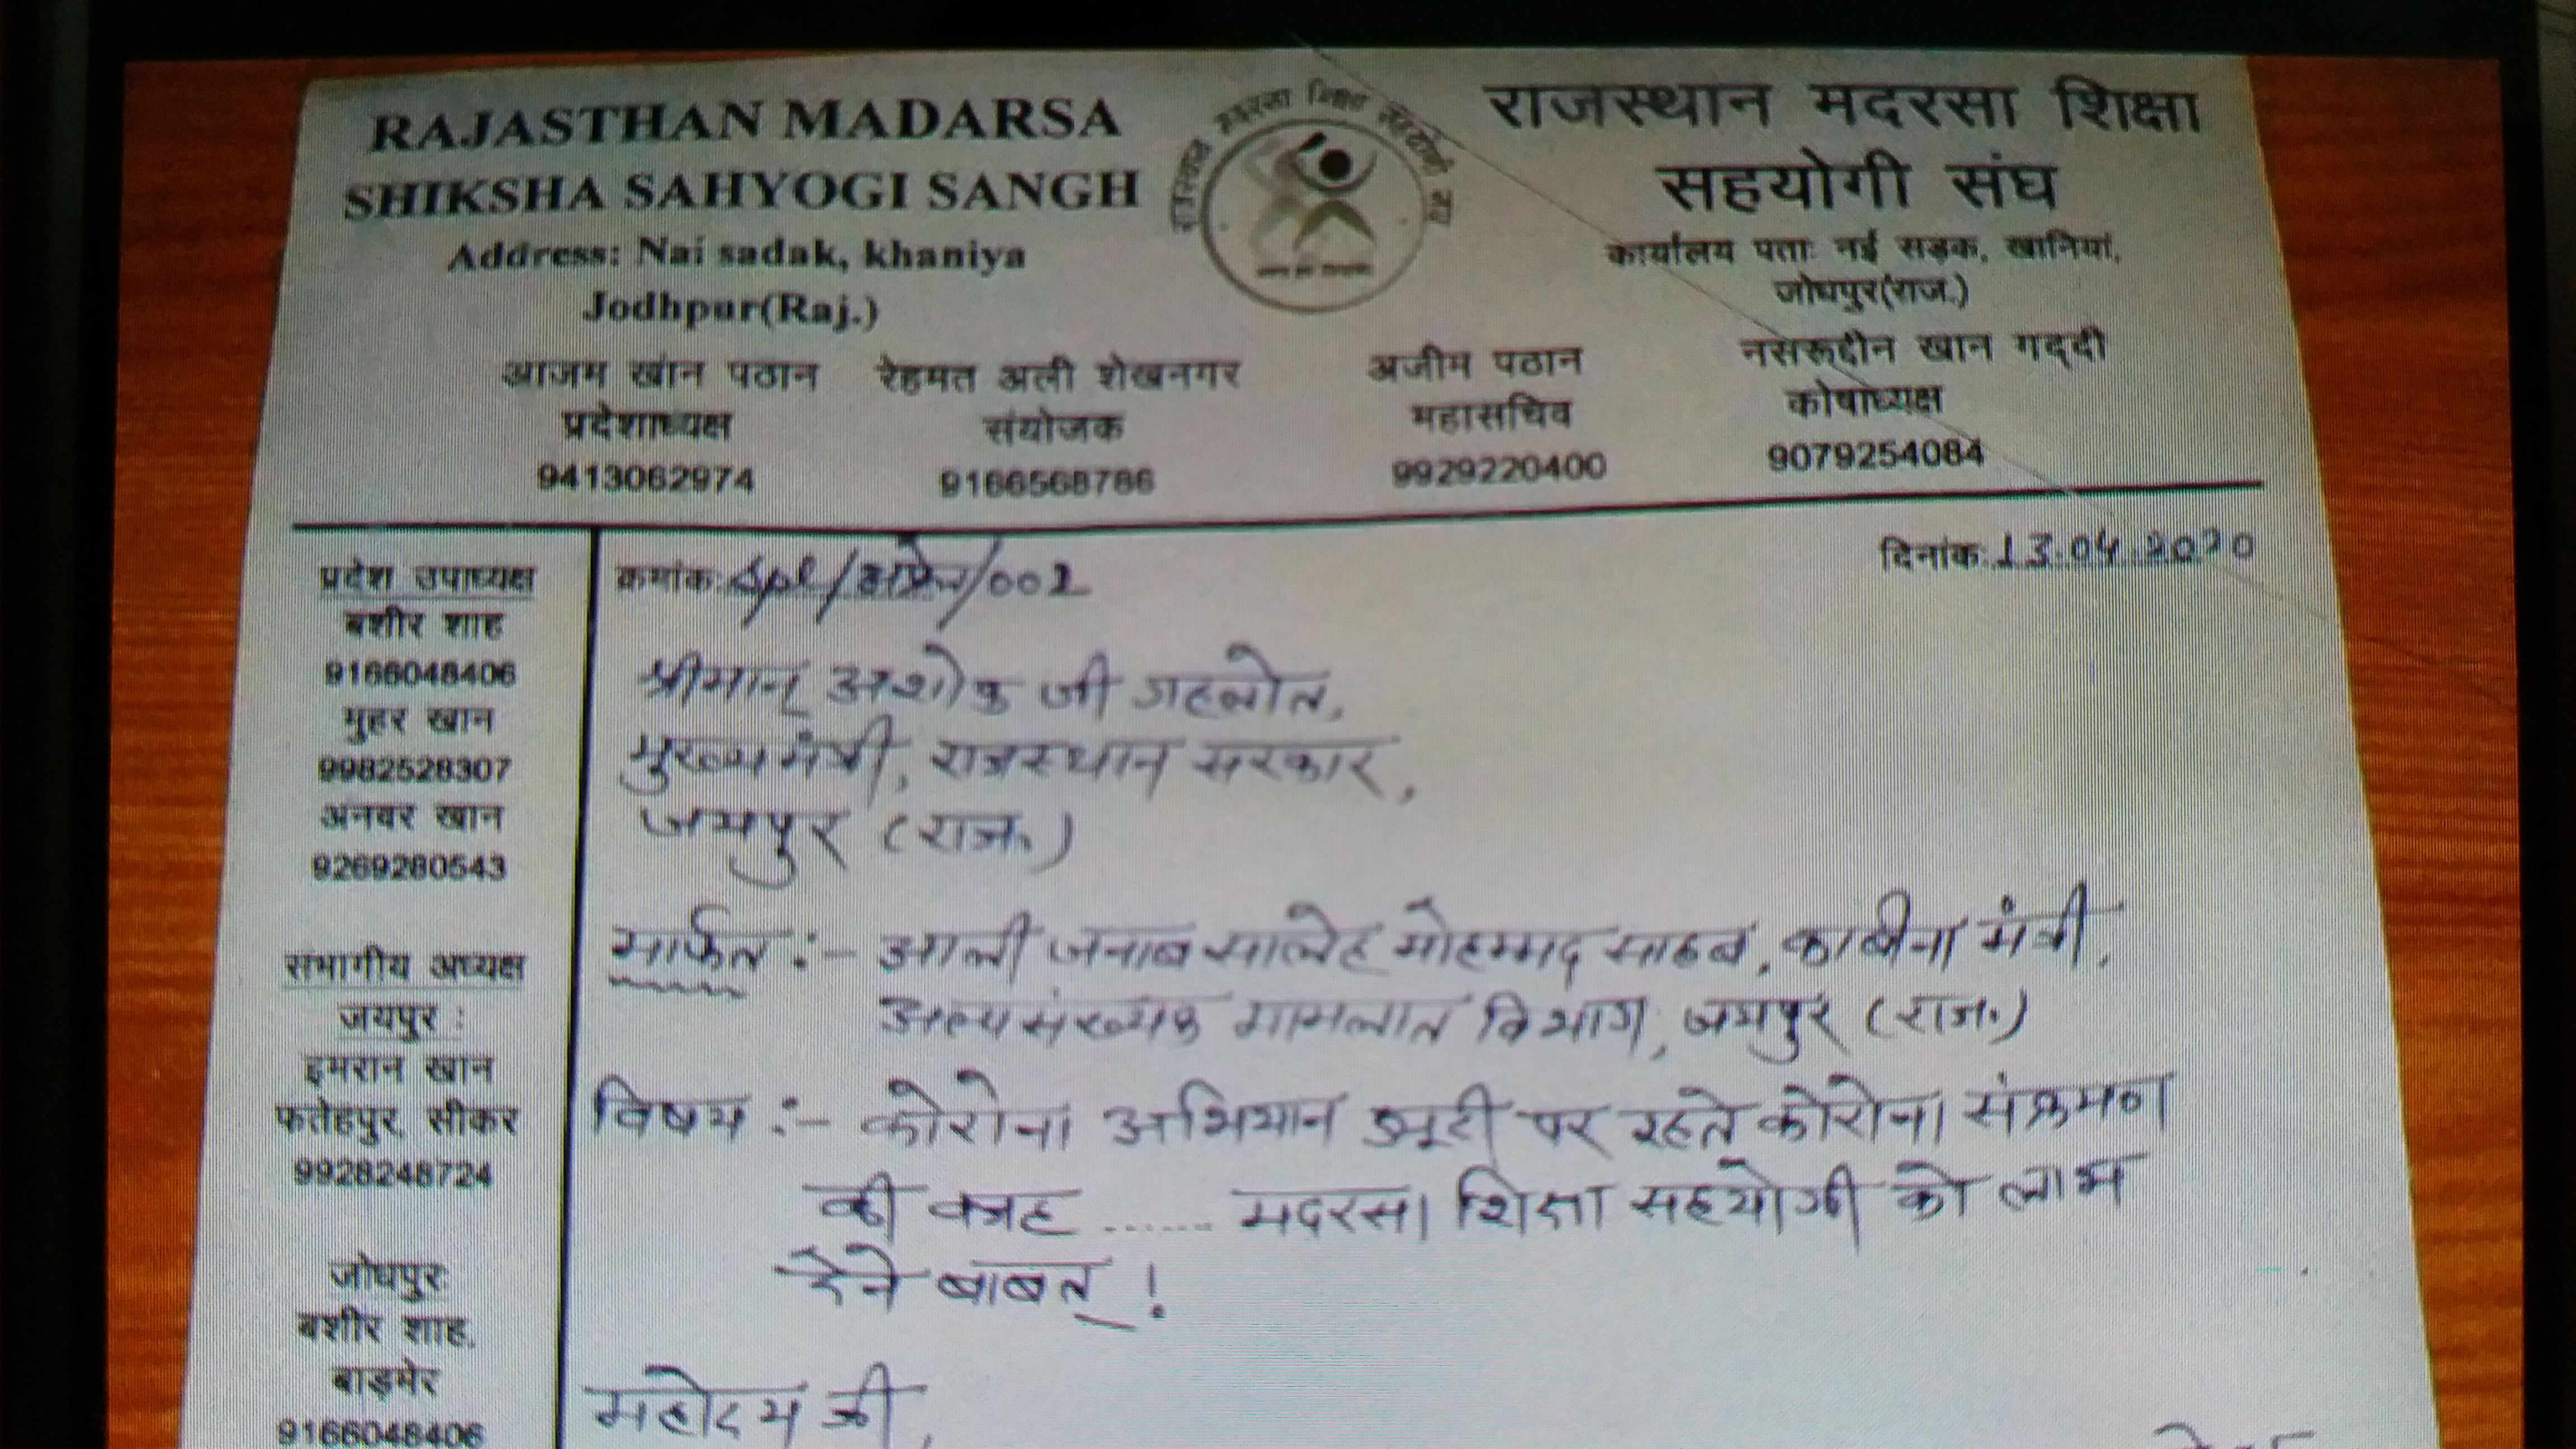 RAJASTHAN MADARSA
SHIKSHA SAHYOGI SANGH
Address: Nai sadak, khaniya
Jodhpur(Raj.)
राजस्थान मदरसा शिक्षा
सहयोगी संघ
कार्यालय पता: नई सड़क, खानियां,
जोधपुर(राज.)
आजम खान पठान
प्रदेशाध्यक्ष
9413062974
रेहमत अली शेखनगर
संयोजक
9166568786
अजीम पठान
महासचिव
9929220400
नसरूद्दीन खान गद्दी
कोषाध्यक्ष
9079254084
प्रदेश उपाध्यक्ष
बशीर शाह
9166048406
मुहर खान
9982528307
अनवर खान
9269280543
सभागीय अध्यक्ष
जयपुर :
इमरान खान
फतेहपुर सीकर
9928248724
जोधपुर
बशीर शाह,
बाड़मेर
9166048406
क्रमांक. /002
दिनांक.13.04.2020
श्रीमान् अशोक जी गहलोत,
मुख्यमंत्री, राजस्थान सरकार,
जयपुर (राज.)
मार्फत :- आली जनाब सालेह मोहम्मद साहब, काबीना मंत्री,
अल्पसंख्यक मामलात विभाग, जयपुर (राज.)
विषय :- कोरोना अभियान ड्यूटी पर रहते कोरोना संक्रमण
की वजह ....... मदरसा शिक्षा सहयोगी को लाभ
देने बाबत !
महोदय जी,